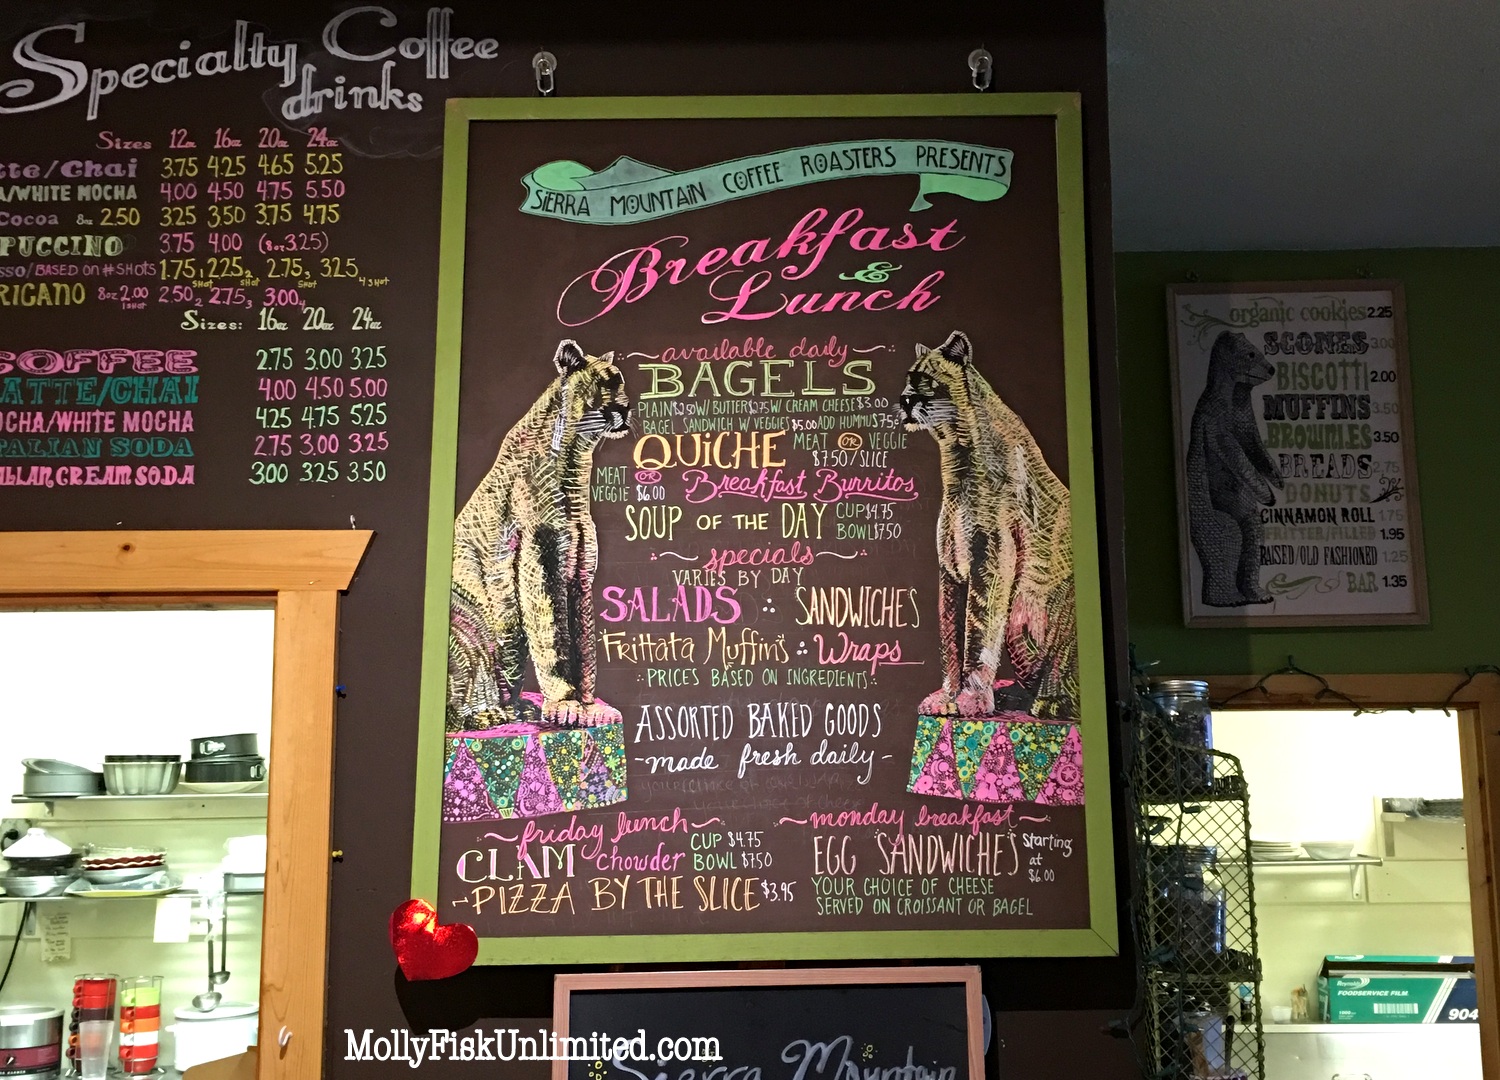 Specialty Coffee
drinks
Sizes 12oz 16oz 20oz 24oz
tte/Chai 3.75 4.25 4.65 5.25
A/WHITE MOCHA 4.00 4.50 4.75 5.50
Cocoa 8oz 2.50 3.25 3.50 3.75 4.75
PUCCINO 3.75 4.00 (8oz 3.25)
sso/BASED on # SHOTS 1.75 1 SHOT 2.25 2 SHOT 2.75 3 SHOT 3.25 4 SHOT
RICANO 8oz 2.00 1 SHOT 2.50 2 2.75 3 3.00 4
Sizes: 16oz 20oz 24oz
COFFEE 2.75 3.00 3.25
ATTE/CHAI 4.00 4.50 5.00
OCHA/WHITE MOCHA 4.25 4.75 5.25
TALIAN SODA 2.75 3.00 3.25
LIAN CREAM SODA 3.00 3.25 3.50
SIERRA MOUNTAIN COFFEE ROASTERS PRESENTS
Breakfast
&
Lunch
~available daily~
BAGELS
PLAIN $2.50 W/ BUTTER $2.75 W/ CREAM CHEESE $3.00
BAGEL SANDWICH W/ VEGGIES $5.00 ADD HUMMUS 75¢
QUICHE MEAT OR VEGGIE
$7.50/SLICE
MEAT OR VEGGIE $6.00 Breakfast Burritos
SOUP OF THE DAY CUP $4.75
BOWL $7.50
~specials~
VARIES BY DAY
SALADS SANDWICHES
Frittata Muffins Wraps
PRICES BASED ON INGREDIENTS
ASSORTED BAKED GOODS
-made fresh daily-
~friday lunch~
CLAM chowder CUP $4.75
BOWL $7.50
-PIZZA BY THE SLICE $3.95
~monday breakfast~
EGG SANDWICHES Starting at $6.00
YOUR CHOICE OF CHEESE
SERVED ON CROISSANT OR BAGEL
organic cookies 2.25
SCONES 3.00
BISCOTTI 2.00
MUFFINS 3.50
BROWNIES 3.50
BREADS 2.75
DONUTS
CINNAMON ROLL 1.75
FRITTER/FILLED 1.95
RAISED/OLD FASHIONED 1.25
BAR 1.35
Reynolds
FOODSERVICE FILM
904
MollyFiskUnlimited.com
Sierra Mountain